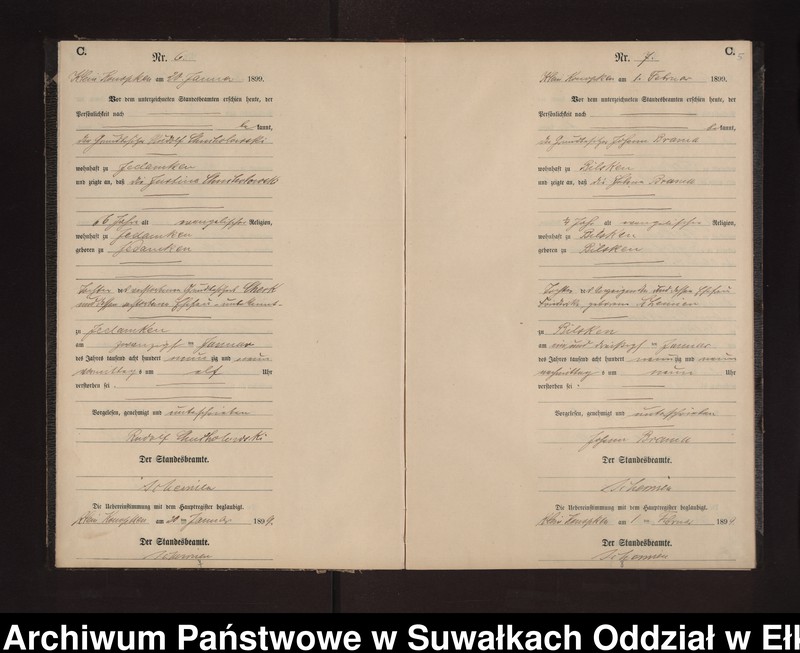 C.
Nr. 6.
Klein Konopken am 20 Januar 1899.
Vor dem unterzeichneten Standesbeamten erschien heute, der
Persönlichkeit nach
be kannt,
der Grundbesitzer Rudolf
wohnhaft zu Jedamken
und zeigte an, daß die Justine
6 Jahr alt evangelischer Religion,
wohnhaft zu Jedamken
geboren zu Jedamken
Tochter des verstorbenen
und dessen Ehefrau
zu Jedamken
am zwanzigst en Januar
des Jahres tausend acht hundert neun zig und neun
Vormittag s um elf Uhr
verstorben sei.
Vorgelesen, genehmigt und unterschrieben
Rudolf
Der Standesbeamte.
Schemien
Die Uebereinstimmung mit dem Hauptregister beglaubigt.
Klein Konopken am 20 ten Januar 1899.
Der Standesbeamte.
Schemien
C.
5
Nr. 7.
Klein Konopken am 1. Februar 1899.
Vor dem unterzeichneten Standesbeamten erschien heute, der
Persönlichkeit nach
be kannt,
der Grundbesitzer Johann Brama
wohnhaft zu Bilsken
und zeigte an, daß die Brama
Jahr alt evangelischer Religion,
wohnhaft zu Bilsken
geboren zu Bilsken
Tochter des Anzeigenden und dessen Ehefrau
geborene Schemien
zu Bilsken
am ein und dreißigst en Januar
des Jahres tausend acht hundert neun zig und neun
Uhr
um neun
verstorben sei.
Vorgelesen, genehmigt und unterschrieben
Johann Brama
Der Standesbeamte.
Schemien
Die Uebereinstimmung mit dem Hauptregister beglaubigt.
Klein Konopken am 1 ten Februar 1899.
Der Standesbeamte.
Schemien
Archiwum Państwowe w Suwałkach Oddział w Ełk